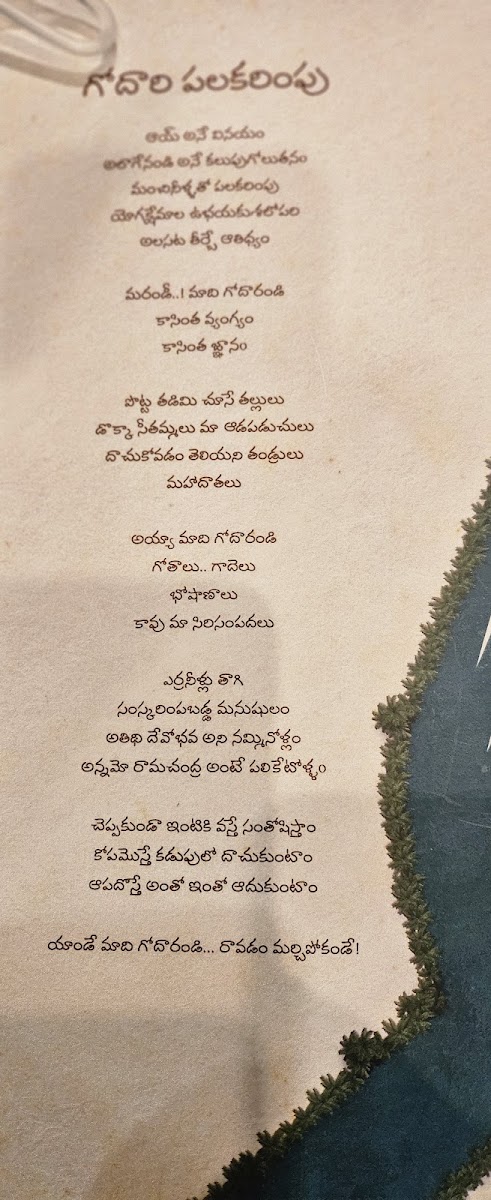 గోదారి పలకరింపు
ఆయ్ అనే వినయం
అలాగేనండి అనే కలుపుగోలుతనం
మంచినీళ్ళతో పలకరింపు
యోగక్షేమాల ఉభయకుశలోపరి
అలసట తీర్చే ఆతిధ్యం
మరండీ..! మాది గోదారండి
కాసింత వ్యంగ్యం
కాసింత జ్ఞానం
పొట్ట తడిమి చూసే తల్లులు
డొక్కా సీతమ్మలు మా ఆడపడుచులు
దాచుకోవడం తెలియని తండ్రులు
మహాదాతలు
అయ్యా మాది గోదారండి
గోతాలు.. గాదెలు
భోషాణాలు
కావు మా సిరిసంపదలు
ఎర్రనీళ్లు తాగి
సంస్కరింపబడ్డ మనుషులం
అతిథి దేవోభవ అని నమ్మినోళ్లం
అన్నమో రామచంద్ర అంటే పలికేటోళ్ళం
చెప్పకుండా ఇంటికి వస్తే సంతోషిస్తాం
కోపమొస్తే కడుపులో దాచుకుంటాం
ఆపదొస్తే అంతో ఇంతో ఆదుకుంటాం
యాండే మాది గోదారండి... రావడం మర్చిపోకండే!